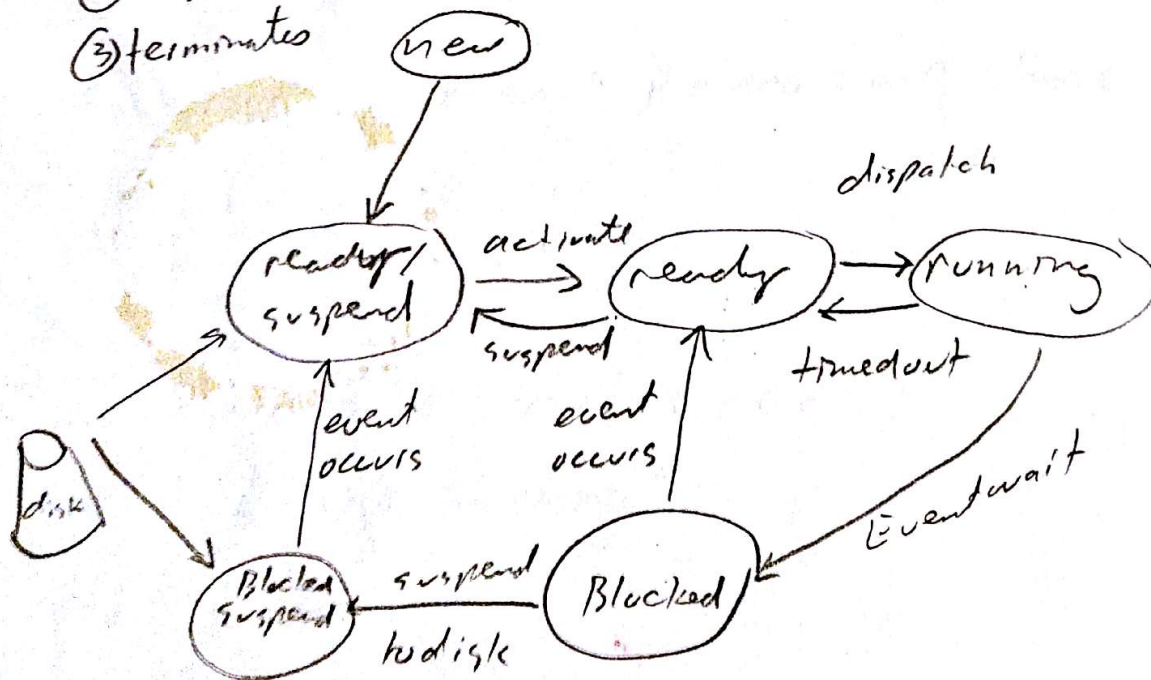 ③ terminates
new
dispatch
ready/
suspend
activate
ready
running
suspend
timedout
event
occurs
event
occurs
Eventwait
disk
Blocked
suspend
suspend
to disk
Blocked